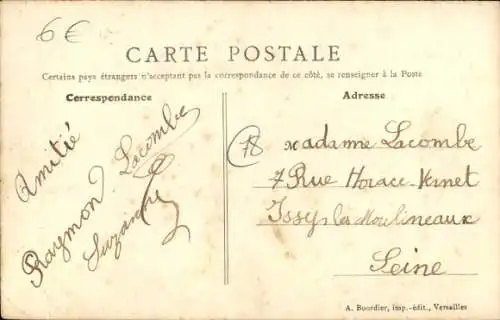 6 €
CARTE POSTALE
Certains pays étrangers n'acceptant pas la correspondance de ce côté, se renseigner à la Poste
Correspondance
Amitié
Raymond Lacombe
Suzanne
Adresse
78
Madame Lacombe
7 Rue Horace-Vernet
Issy les Moulineaux
Seine
A. Bourdier, imp.-édit., Versailles